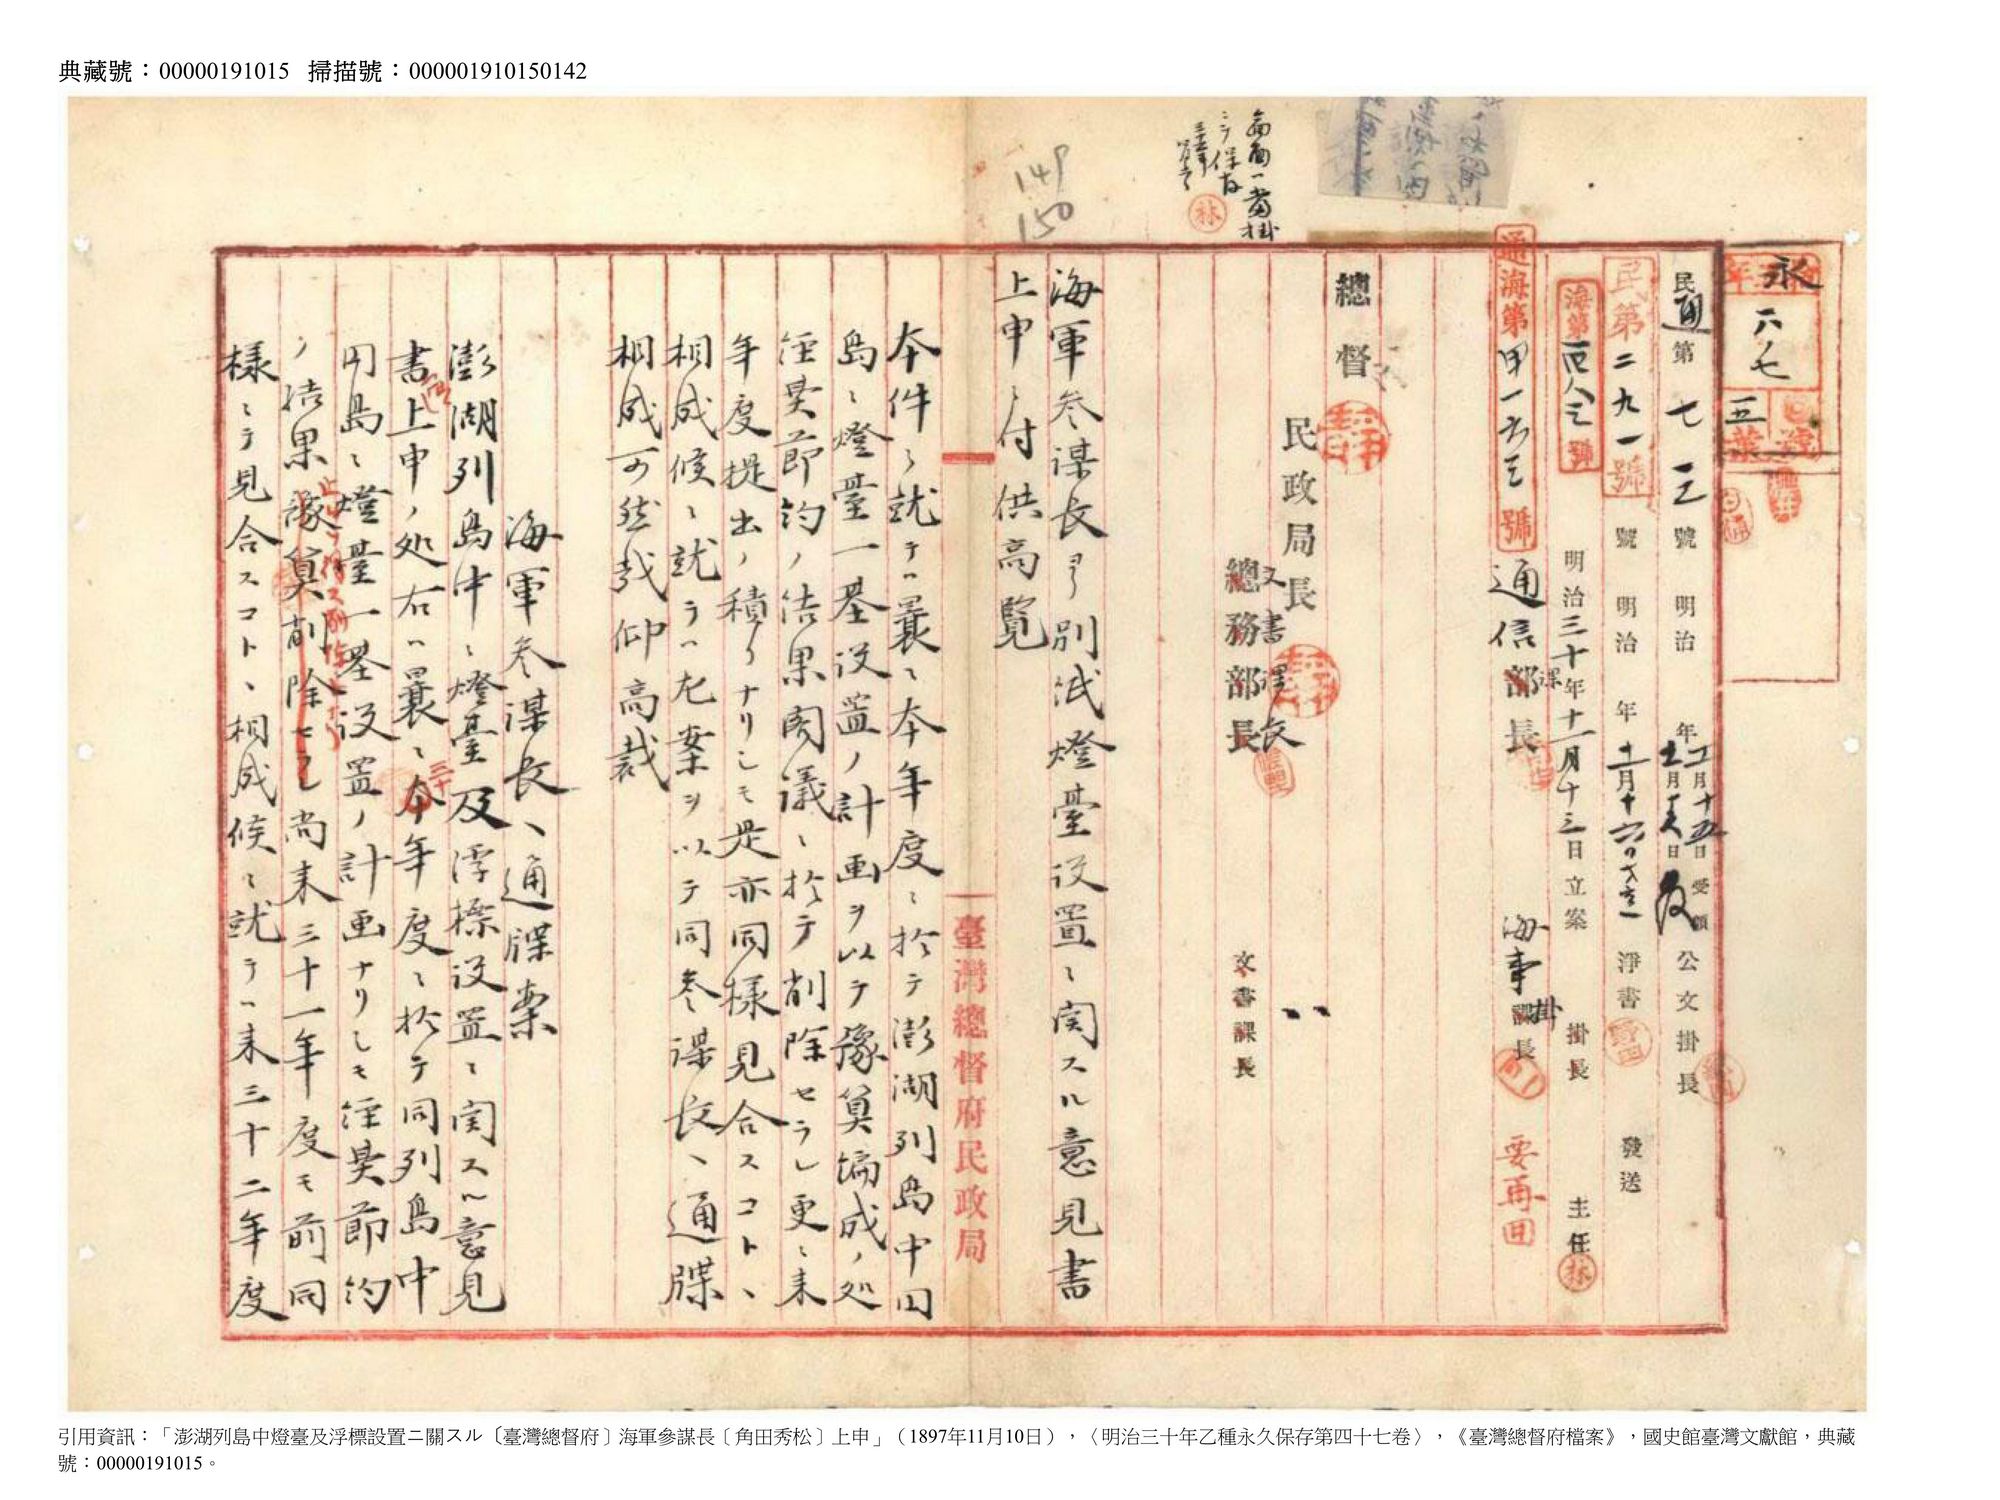 典藏號：00000191015 掃描號：000001910150142
149
150
林
永
六ノ七
五
民通第七三號 明治 年 月 日受領 公文掛長
民第二九一號 號 明治 年十一月十六日 淨書 發送
海第 號 明治三十年十一月十三日立案 掛長 主任
通海第甲一六三號 通信課長 海事掛長 要再回
總督
民政局長
總務部長 文書課長
文書課長
海軍参謀長ヨリ別紙燈臺設置ニ関スル意見書
上申ニ付供高覧
臺灣總督府民政局
本件ニ就テハ曩ニ本年度ニ於テ澎湖列島中円
島ニ燈臺一基設置ノ計画ヲ以テ豫算編成ノ処
経費節約ノ結果閣議ニ於テ削除セラレ更ニ来
年度提出ノ積リナリシモ是亦同様見合スコトヽ
相成候ニ就テハ左案ヲ以テ同参謀長ヘ通牒
相成可然哉仰高裁
海軍参謀長ヘ通牒案
澎湖列島中ニ燈臺及浮標設置ニ関スル意見
書上申ノ処右ハ曩ニ本年度ニ於テ同列島中
三十
円島ニ燈臺一基設置ノ計画ナリシモ経費節約
ノ結果豫算削除セラレ尚来三十一年度モ前同
様ニテ見合スコトヽ相成候ニ就テハ来三十二年度
引用資訊：「澎湖列島中燈臺及浮標設置ニ關スル〔臺灣總督府〕海軍參謀長〔角田秀松〕上申」（1897年11月10日），〈明治三十年乙種永久保存第四十七卷〉，《臺灣總督府檔案》，國史館臺灣文獻館，典藏
號：00000191015。